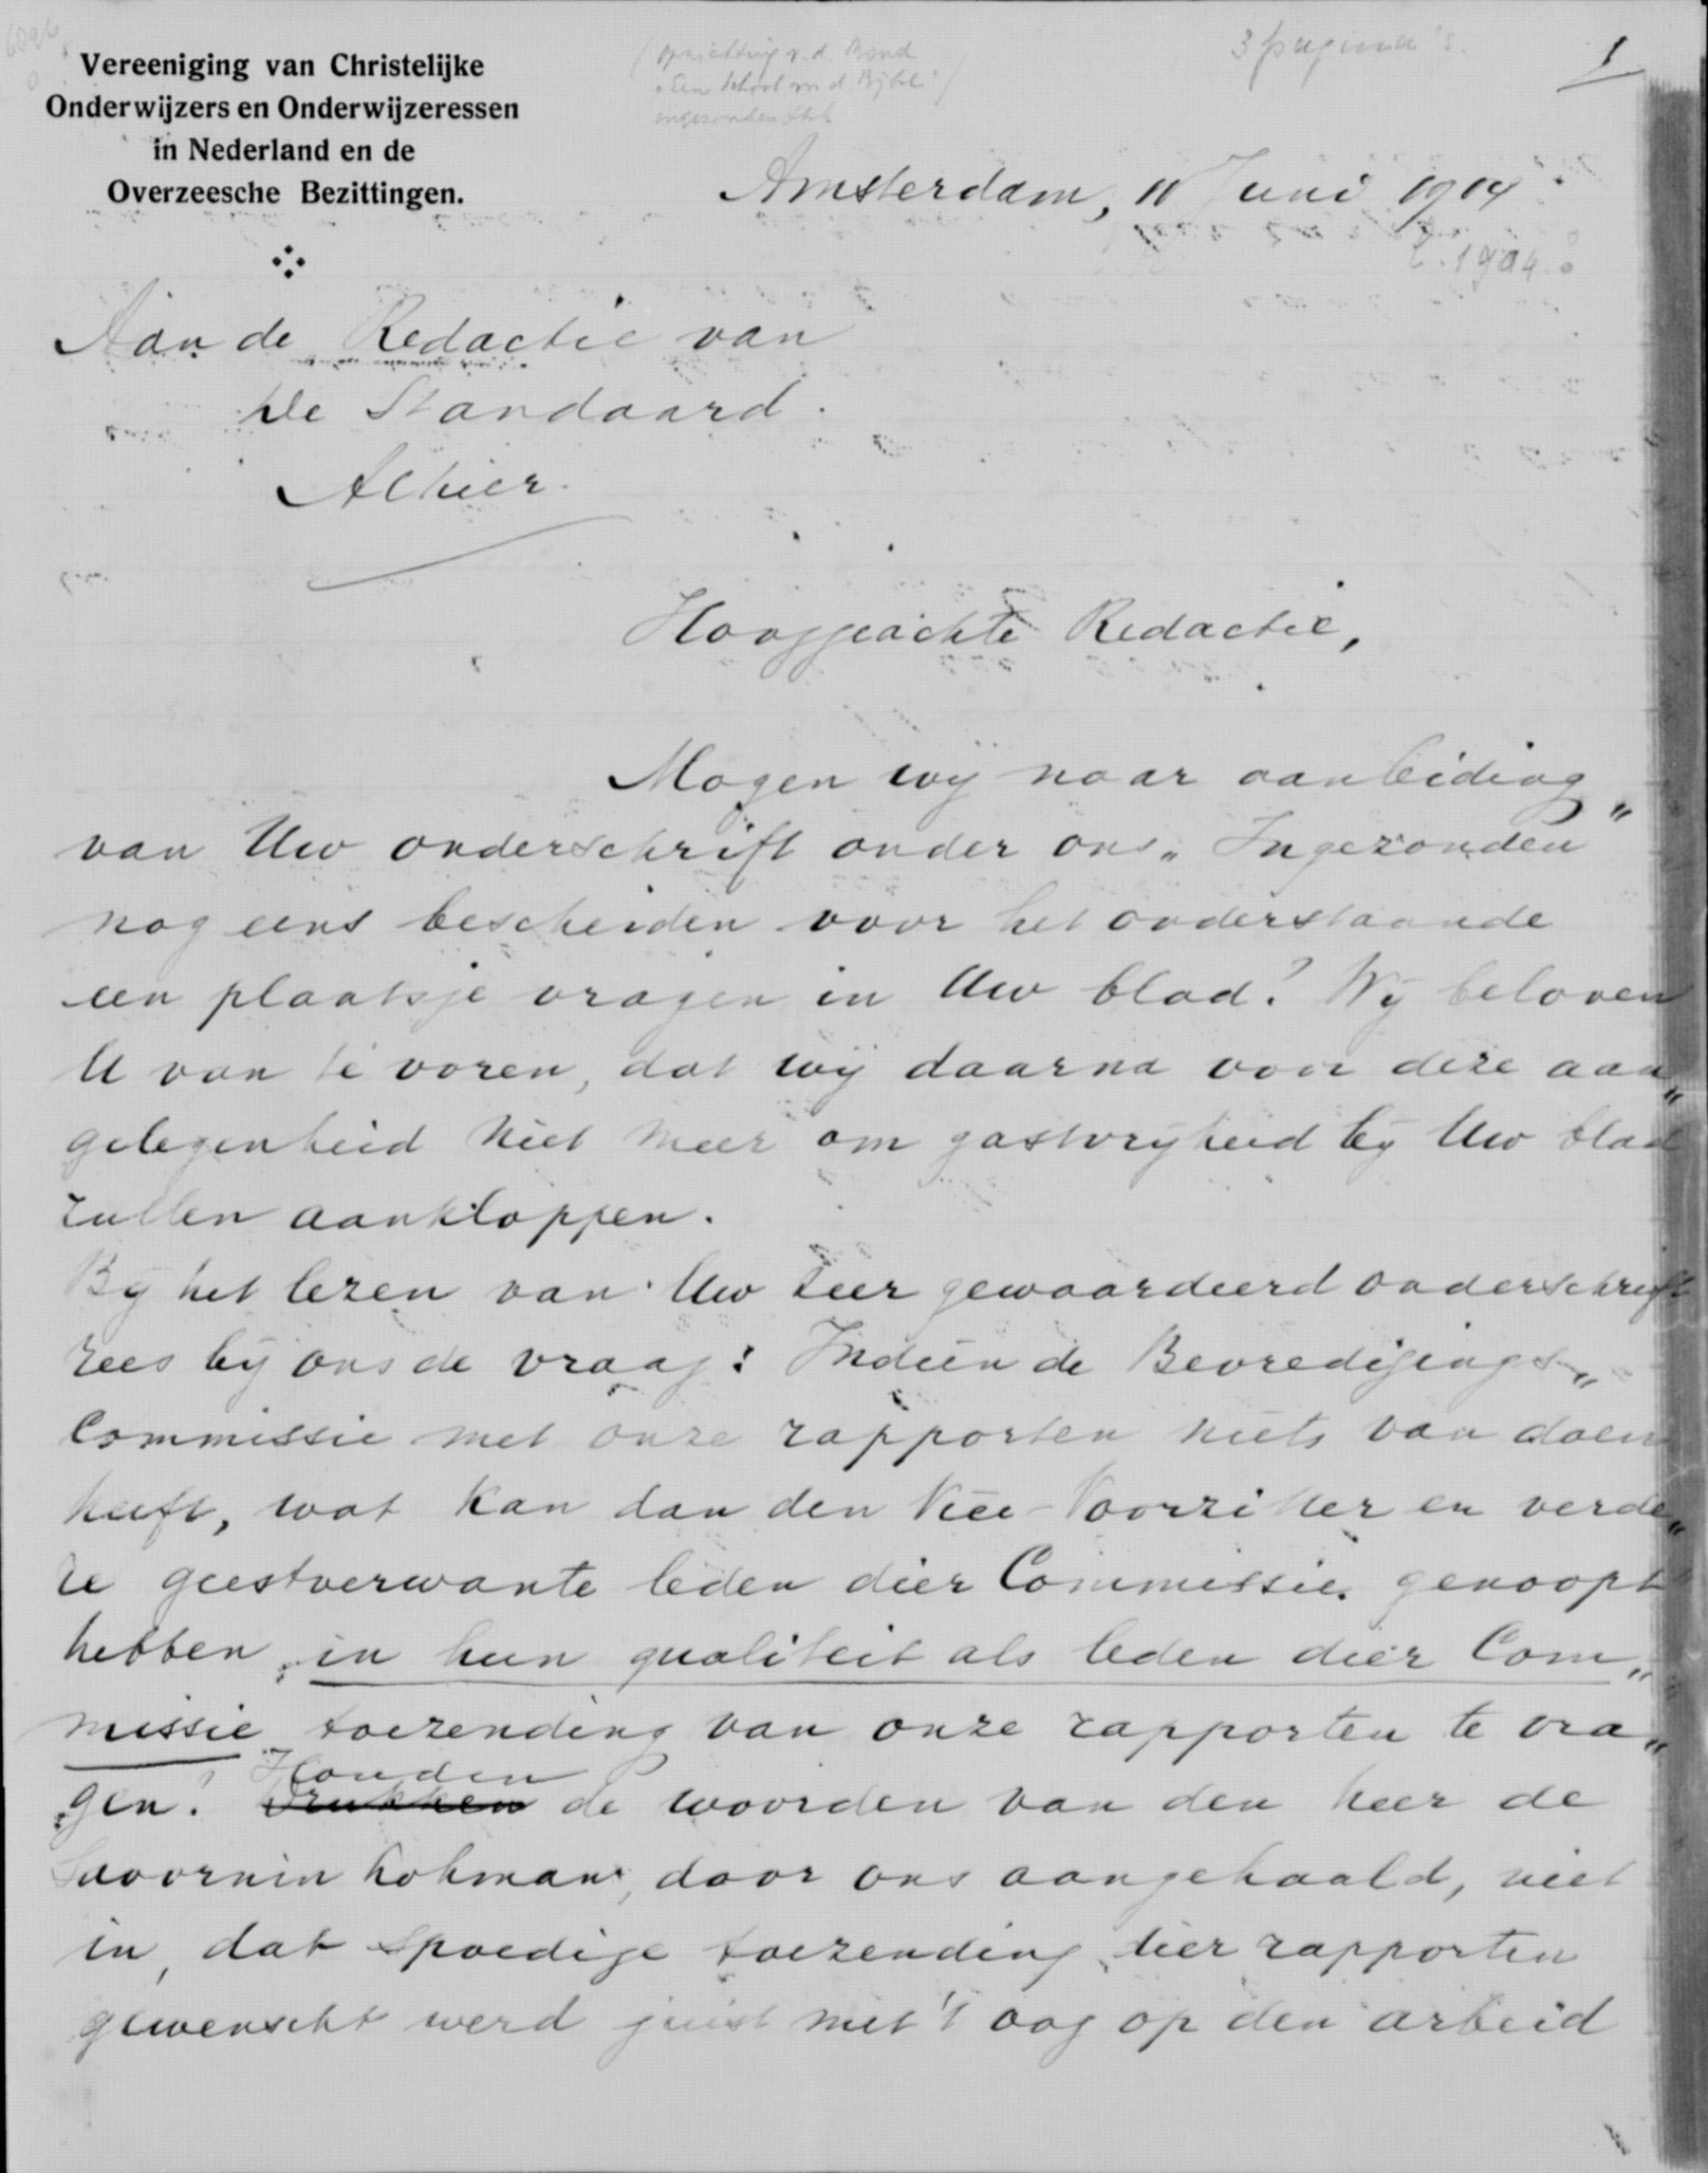 Vereeniging van Christelijke
Onderwijzers en Onderwijzeressen
in Nederland en de
Overzeesche Bezittingen.
(oprichting v. d. Bond
"Een School m d. Bijbel")
ingezonden stuk
3 pagina's.
1
Amsterdam, 11 Juni 1914
1904
Aan de Redactie van
De Standaard.
Alhier.
Hooggeachte Redactie,
Mogen wij naar aanleiding
van Uw onderschrift onder ons „Ingezonden"
nog eens bescheiden voor het onderstaande
een plaatsje vragen in Uw blad? Wij beloven
U van te voren, dat wij daarna voor deze aan„
gelegenheid niet meer om gastvrijheid bij Uw blad
zullen aankloppen.
Bij het lezen van Uw zeer gewaardeerd onderschrift
rees bij ons de vraag: Indien de Bevredigings„
Commissie met onze rapporten niets van doen
heeft, wat kan dan den Vice-Voorzitter en verde„
re geestverwante leden dier Commissie genoopt
hebben, in hun qualiteit als leden dier Com„
missie toezending van onze rapporten te vra„
gen? Houden
Drukken de woorden van den heer de
Savornin Lohman, door ons aangehaald, niet
in, dat spoedige toezending dier rapporten
gewenscht werd juist met 't oog op den arbeid